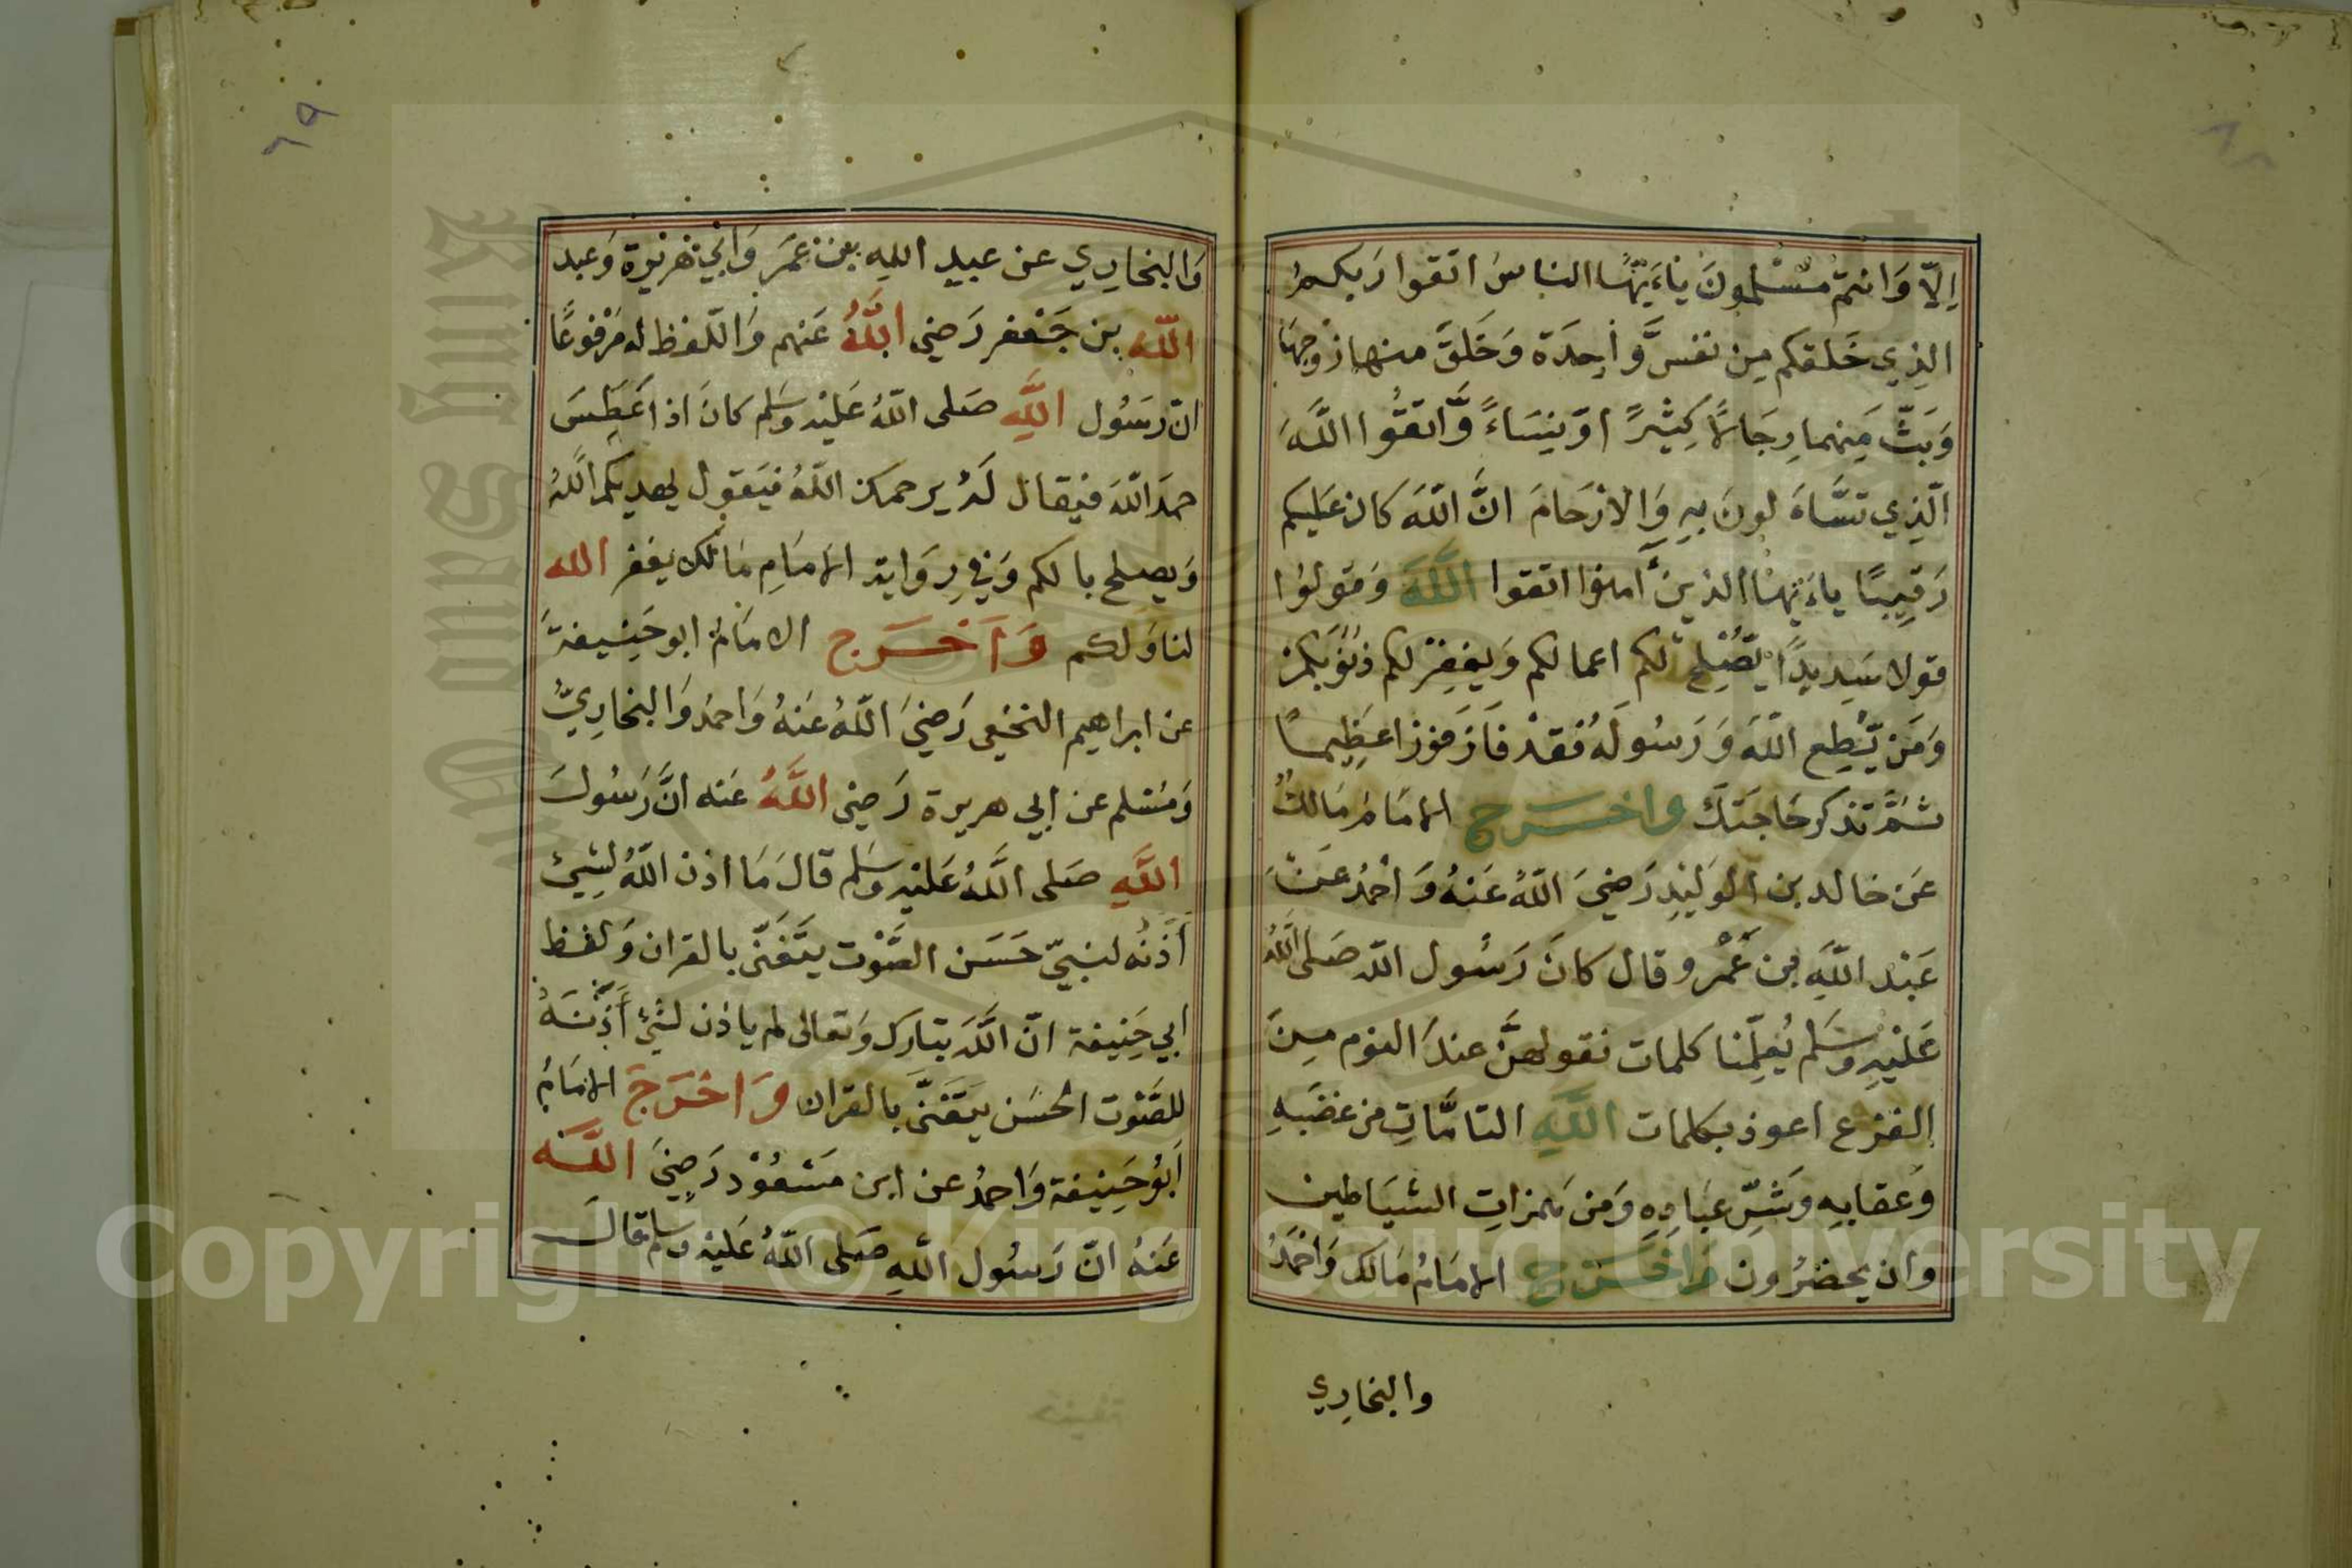 اِلاّ وَانتم مُسْلمونَ يٰاَءَيّهَا الناسُ اتقوا رَبكمُ
الذِي خَلقكم مِن نفسٍ وَّاحِدَة وَخَلَقَ منها زوجهَا
وَبَثَّ مِنهما رِجَالاً كثِيْرًا وّنِسَاءً وَّاتقُوا اللَّهَ
الّذِي تسَّاءَ لونَ بِهِ وَالارْحَامَ انَّ اللّهَ كان عَليكم
رَقِيبًا ياءَيّهَا الذينَ اٰمنوا اتقوا اللَّهَ وَقولوُا
قولا سَدِيدًا يُّصْلِح لكم اعمالكم وَيغفِرْ لكم ذنُوبَكمْ
وَمَن يُّطِع اللّهَ وَرَسُولَهُ فقدْ فَازَ فوزا عَظِيمًا
ثمَّ تذكر حَاجَتَك واخرج الامَامُ مَالكٌ
عَن خالد بن الوَليْدِ رَضِيَ اللّهُ عَنهُ وَاحْمدُ عَنْ
عَبْد اللّهِ بن عَمْرو قال كانَ رَسُول اللّه صَلى اللّهُ
عَليْهِ وسَلم يُعلِّمنا كلمات نقولهنَّ عندَ النوم مِنَ
الفزع اعوذ بكلمات اللَّهِ التامَّاتِ من غضَبِهِ
وَعقابِهِ وشَرِّ عِبَادِهِ وَمن هَمزاتِ الشيَاطين
وان يحضرُون وَاخرج الامَامُ مَالك وَاحْمَدُ
والبخاري
٦٨
٦٩
وَالبخارِي عن عبدِ اللهِ بن عمَر وَابي هُرَيْرة وَعبد
اللّه بن جَعْفر رَضي اللَّهُ عَنهم وَاللّفظ له مَرْفوعًا
انّ رسُول اللَّهِ صَلى اللّهُ عَليْه وسَلم كانَ اذا عَطسَ
حمدَ اللّهَ فيقال لَهُ يرحمك اللّهُ فيَقول يهدِيكم اللَّهُ
وَيصلح بالكم وَفي رِوَاية الامَامِ مَالك يغفر الله
لنا وَلكم وَاَخرج الامَامُ ابو حَنِيفة
عن ابراهيم النخعِي رَضِيَ اللّهُ عَنهُ وَاحمدُ وَالبخارِيُّ
وَمسْلم عن ابي هريرة رَضِي اللَّهُ عَنه انَّ رَسُولَ
اللَّهِ صَلى اللَّهُ عَليْهِ وسَلم قالَ مَا اذن اللّهُ لِشيْئ
أَذَنَهُ لنبيّ حَسَن الصَّوْت يتَغَنّى بالقران وَلفظ
ابي حَنِيفة انّ اللَّه تبَارك وَتعالى لم ياذن لشيْئ أَذَنَهُ
للصَّوْت الحسَن يتَغَنَّى بالقران وَاخرَجَ الامَامُ
اَبُو حَنِيفة وَاحمدُ عن ابن مَسْعُوْد رَضِيَ اللَّه
عَنهُ انّ رَسُول اللّهِ صَلى اللّهُ عَليْه وسلم قالَ
Copyright © King Saud University